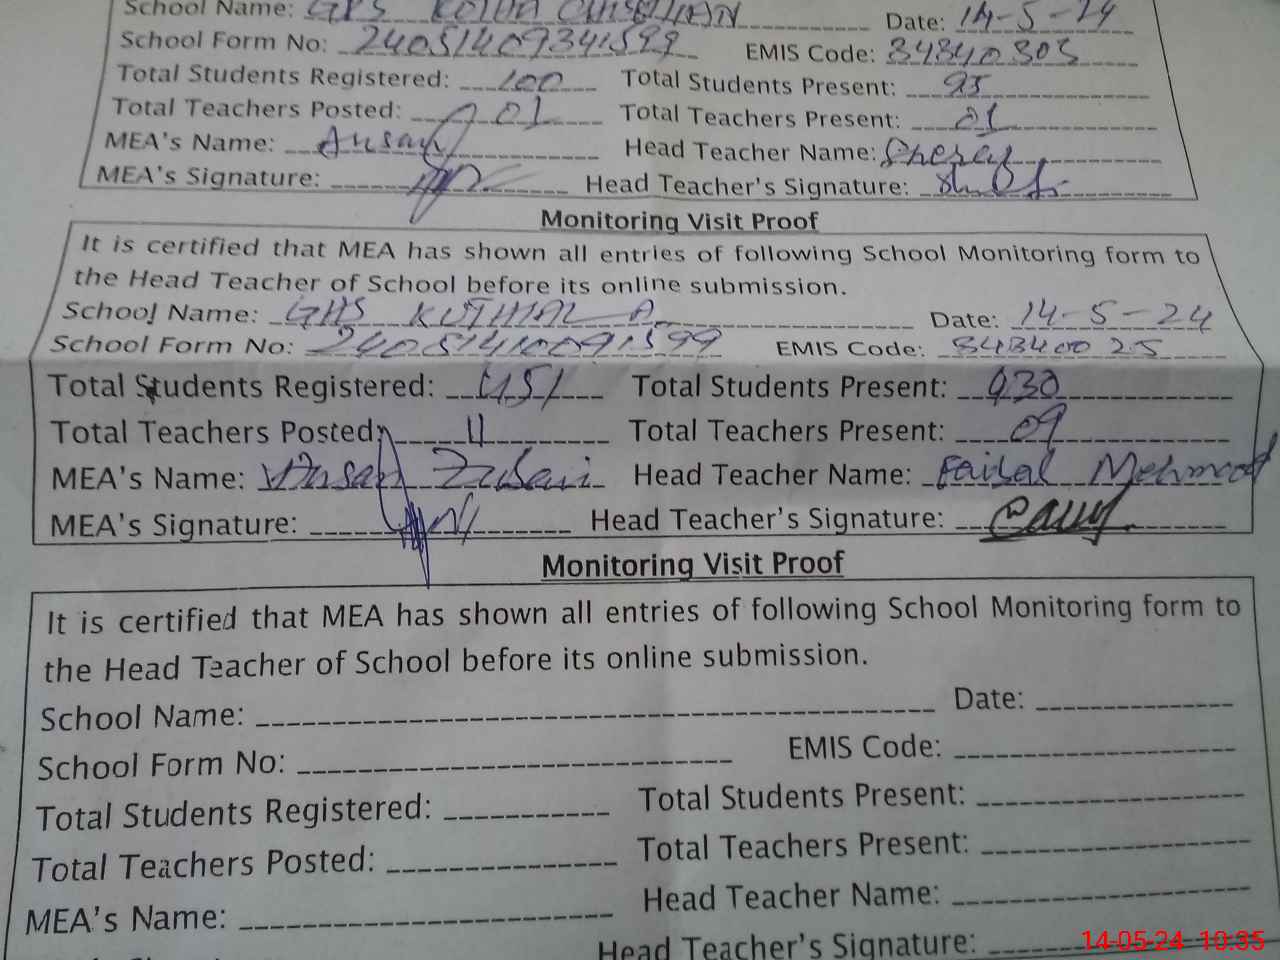 School Name: GPS KOTHA Date: 14-5-24
School Form No: 24051409341599 EMIS Code: 34340303
Total Students Registered: 100 Total Students Present: 95
Total Teachers Posted: 01 Total Teachers Present: 01
MEA's Name: Ansar Head Teacher Name:
MEA's Signature: Head Teacher's Signature:
Monitoring Visit Proof
It is certified that MEA has shown all entries of following School Monitoring form to
the Head Teacher of School before its online submission.
School Name: GHS KOTHIALA Date: 14-5-24
School Form No: 24051410091599 EMIS Code: 34340025
Total Students Registered: 451 Total Students Present: 430
Total Teachers Posted: 11 Total Teachers Present: 09
MEA's Name: Ansar Head Teacher Name: Faisal Mehmood
MEA's Signature: Head Teacher's Signature:
Monitoring Visit Proof
It is certified that MEA has shown all entries of following School Monitoring form to
the Head Teacher of School before its online submission.
School Name: Date:
School Form No: EMIS Code:
Total Students Registered: Total Students Present:
Total Teachers Posted: Total Teachers Present:
MEA's Name: Head Teacher Name:
Head Teacher's Signature:
14-05-24 10:35